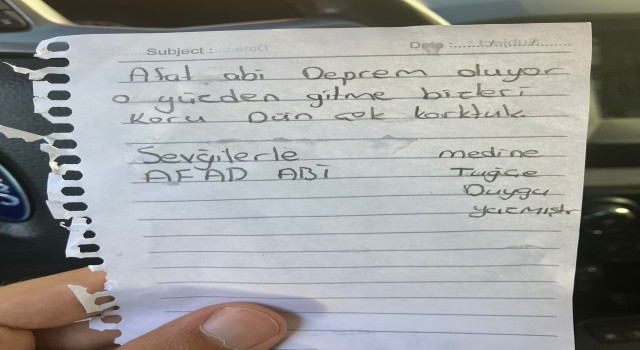 Subject : Date :
Afat abi Deprem oluyor
o yüzden gitme bizleri
Koru Dün çok korktuk.
Sevğilerle medine
AFAD ABİ Tuğçe
Duygu
yazmıştır